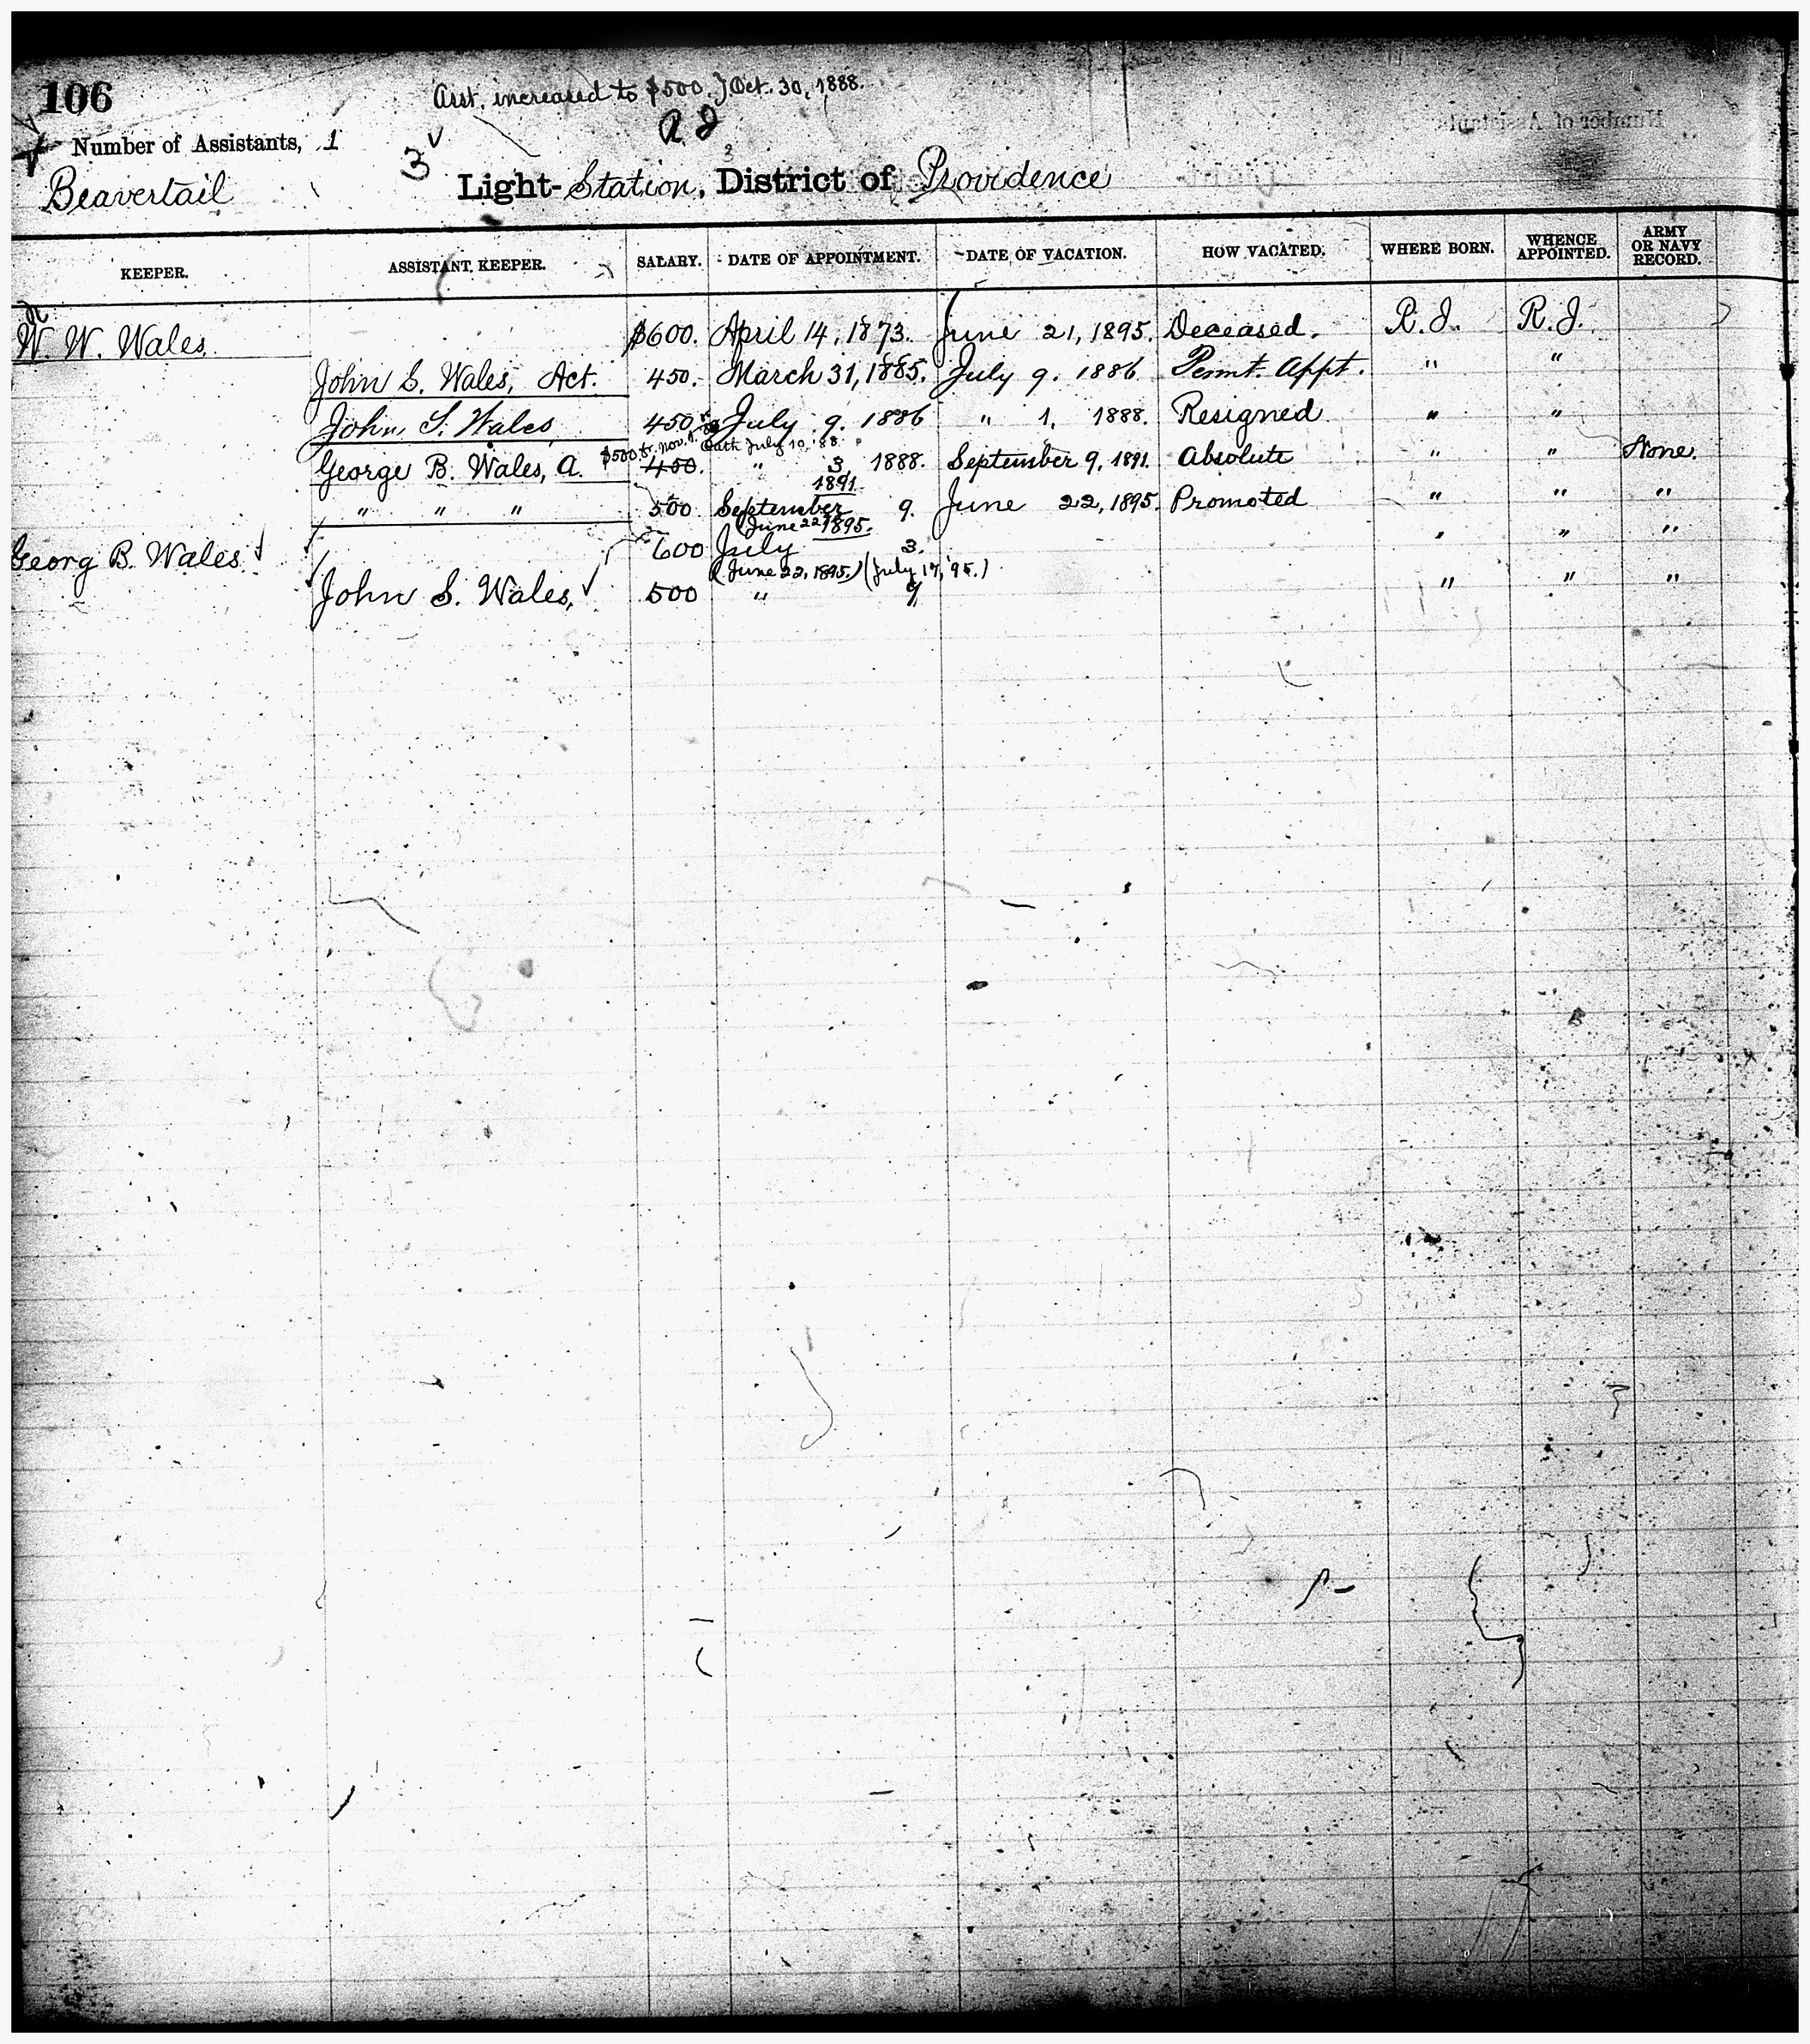 106
Asst. increased to $500. } Oct. 30, 1888.
R. I.
Number of Assistants, 1
3
Beavertail Light-Station, District of Providence
KEEPER. ASSISTANT KEEPER. SALARY. DATE OF APPOINTMENT. DATE OF VACATION. HOW VACATED. WHERE BORN. WHENCE APPOINTED. ARMY OR NAVY RECORD.
W. W. Wales. $600. April 14, 1873. June 21, 1895. Deceased. R.I. R.I.
John S. Wales, Act. 450. March 31, 1885. July 9. 1886 Permt. Appt. " "
John S. Wales 450 July 9. 1886 " 1, 1888. Resigned " "
$500 fr. Nov. 1. Oath July 10, '88.
George B. Wales, A. 450. " 3, 1888. September 9, 1891. Absolute " " None.
1891.
" " " 500 September 9. June 22, 1895. Promoted " " "
(June 22, 1895.
Georg B. Wales. 600 July 3. " " "
(June 22, 1895.) (July 17, '95.)
John S. Wales, 500 " 9, " " "